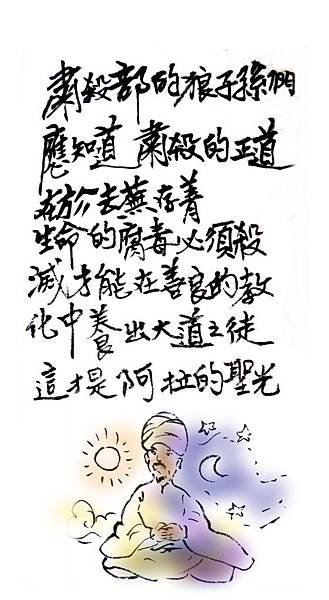 肅殺部的狼子孫們
應知道 肅殺的正道
在於去蕪存菁
生命的腐毒必須殺
滅才能在善良的教
化中養出大道之徒
這才是阿拉的聖光